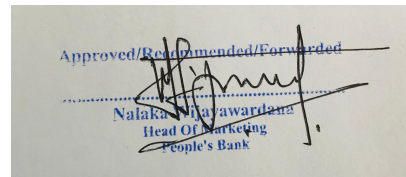 Approved/Recommended/Forwarded
Nalaka Wijayawardana
Head Of Marketing
People's Bank